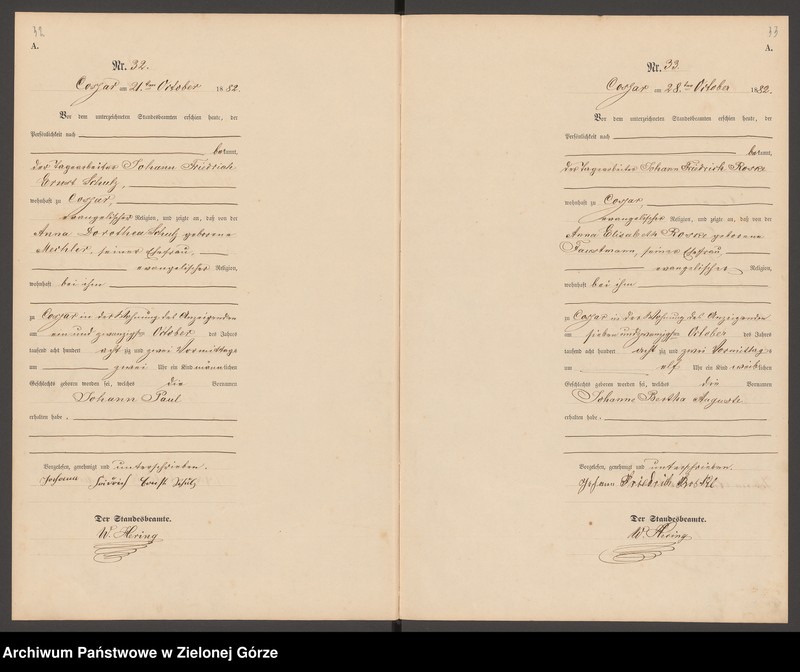 32
A.
Nr. 32.
Cossar am 21.ten October 1882.
Vor dem unterzeichneten Standesbeamten erschien heute, der
Persönlichkeit nach
bekannt,
der Tagearbeiter Johann Friedrich
Ernst Schulz,
wohnhaft zu Cossar,
evangelischer Religion, und zeigte an, daß von der
Anna Dorothea Schulz geborene
Mechler, seiner Ehefrau,
evangelischer Religion,
wohnhaft bei ihm
zu Cossar in der Wohnung des Anzeigenden
am ein und zwanzigsten October des Jahres
tausend acht hundert achtzig und zwei Vormittags
um zwei Uhr ein Kind männlichen
Geschlechts geboren worden sei, welches die Vornamen
Johann Paul
erhalten habe.
Vorgelesen, genehmigt und unterschrieben.
Johann Fridrich Ernst Schulz
Der Standesbeamte.
W. Hering
33
A.
Nr. 33
Cossar am 28.ten October 1882.
Vor dem unterzeichneten Standesbeamten erschien heute, der
Persönlichkeit nach
bekannt,
der Tagearbeiter Johann Friedrich Roske
wohnhaft zu Cossar,
evangelischer Religion, und zeigte an, daß von der
Anna Elisabeth Roske geborene
Faustmann, seiner Ehefrau,
evangelischer Religion,
wohnhaft bei ihm
zu Cossar in der Wohnung des Anzeigenden
am sieben und zwanzigsten October des Jahres
tausend acht hundert achtzig und zwei Vormittags
um elf Uhr ein Kind weiblichen
Geschlechts geboren worden sei, welches die Vornamen
Johanne Bertha Auguste
erhalten habe.
Vorgelesen, genehmigt und unterschrieben.
Johann Friedrich Roske
Der Standesbeamte.
W. Hering
Archiwum Państwowe w Zielonej Górze